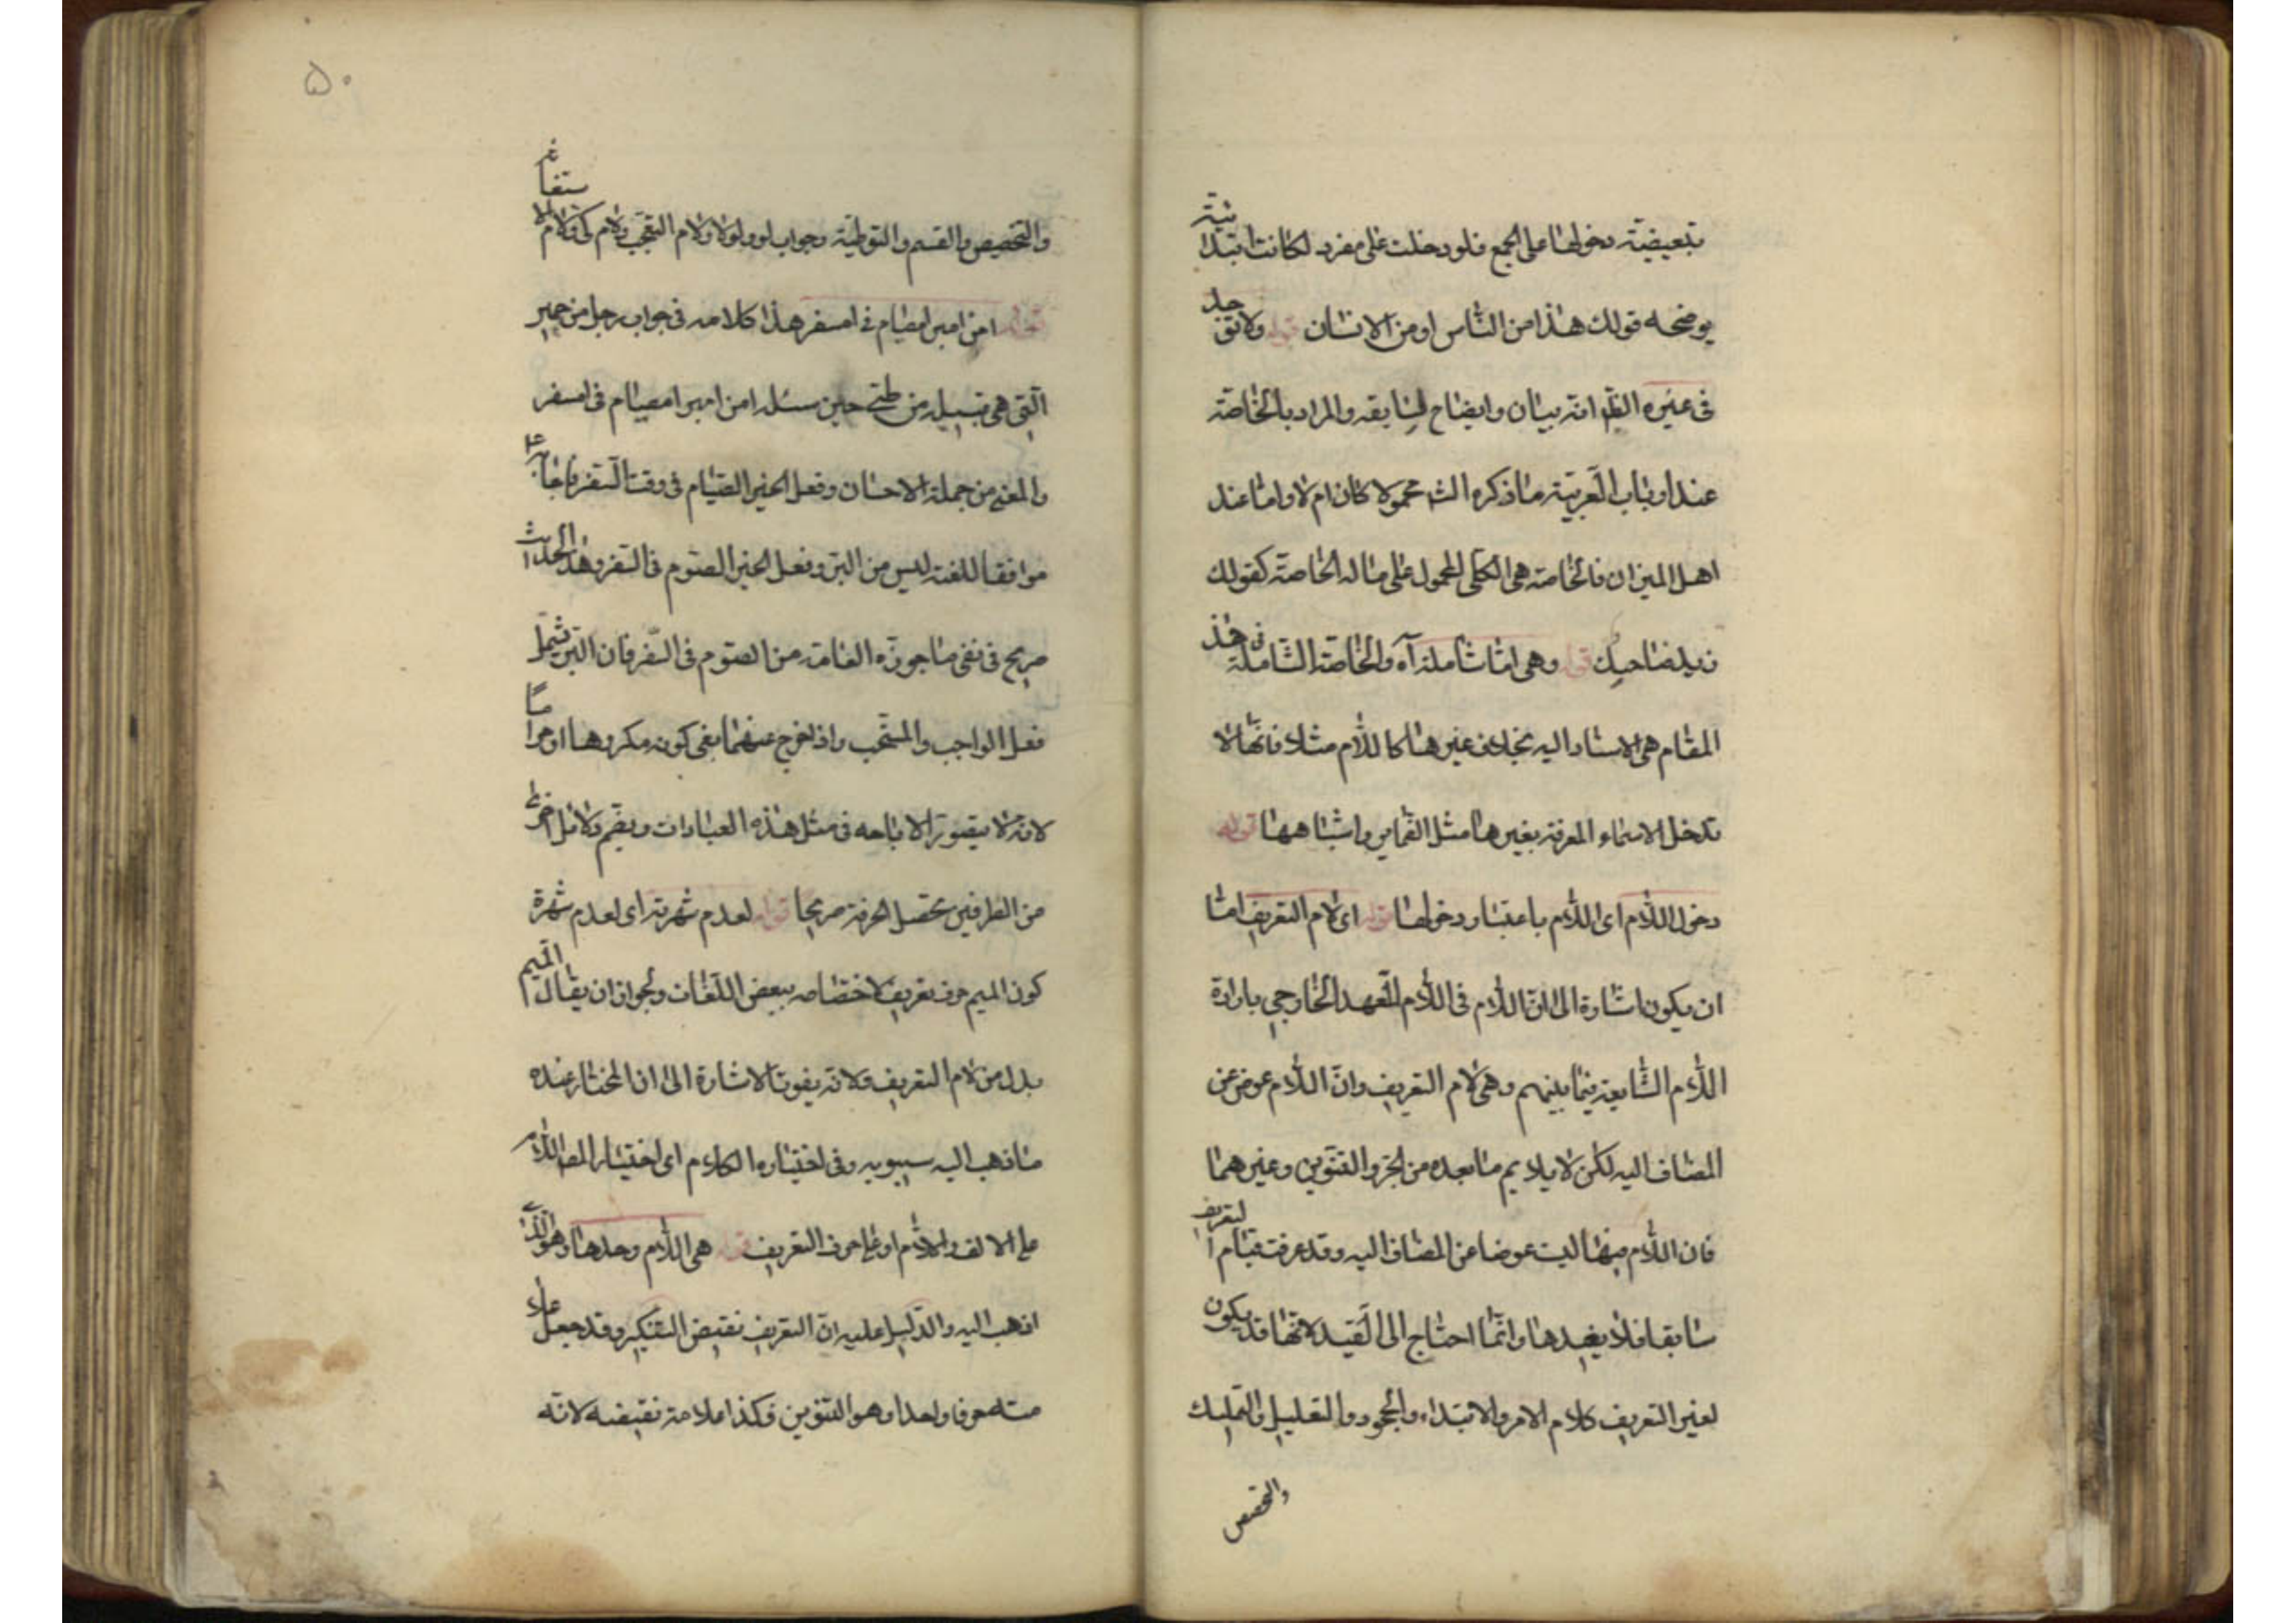 تبعيضية دخولها على الجمع فلو دخلت على مفرد لكانت ابتدائية
يوضحه قولك هذا من الناس او من الانسان قوله ولا توجد
فى غيره الظ انه بيان وايضاح لسابقه والمراد بالخاصة
عند ارباب العربية ما ذكره الش محمولا كان ام لا واما عند
اهل الميزان فالخاصة هى الكلى المحمول على ما له الخاصة كقولك
زيد ضاحك قوله وهى اما شاملة آه والخاصة الشاملة فى هذ
المقام هى الاسناد اليه بخلاف غيرها كاللام مثلا فانها لا
تدخل الاسماء المعرفة بغيرها مثل الضماير واشباهها قوله
دخول اللام اى اللام باعتبار دخولها قوله اى لام التعريف اما
ان يكون اشارة الى ان اللام فى اللام للعهد الخارجي بارادة
اللام الشايعة فيما بينهم وهى لام التعريف وان اللام عوض عن
المضاف اليه لكن لا يلايم ما بعده من الجر والتنوين وغيرهما
فان اللام فيها ليست عوضا عن المضاف اليه وقد عرفت قيام التعريف
سابقا فلا يفيدها وانما احتاج الى القيد لانها قد يكون
لغير التعريف كلام الامر والابتداء والجحود والتعليل والتمليك
والتخصيص
۵۰
والتخصيص والقسم والتوطية وجواب لو ولولا ولام التعجب ولام كى ولام الاستغا
قوله امن امبر امصيام فى امسفر هذا كلامه فى جواب رجل من حمير
التى هى قبيلة من طى حين سئله امن امبر امصيام فى امسفر
والمعنى من جملة الاحسان وفعل الخير الصيام فى وقت السفر فاجابه ع
موافقا للغته ليس من البر وفعل الخير الصوم فى السفر وهذا الحديث
صريح فى نفى ما جوزه العامة من الصوم فى السفر فان البر يشمل
فعل الواجب والمستحب واذا خرج عنهما بقى كونه مكروها او حراما
لانه لا يتصور الاباحه فى مثل هذه العبادات وبضم دلائل اخرى
من الطرفين يحصل الحرمة صريحا قوله لعدم شهرته اى لعدم شهرة
كون الميم حرف تعريف لاختصاصه ببعض اللغات ولجواز ان يقال الميم
بدل من لام التعريف ولانه يفوت الاشارة الى ان المختار عنده
ما ذهب اليه سيبويه وفى اختياره الكلام اى اختيار المص اللام
على الالف واللام او على حرف التعريف قوله هى اللام وحدها وهو الذى
اذهب اليه والدليل عليه ان التعريف نقيض التنكير وقد جعل علا
مته حرفا واحدا وهو التنوين فكذا علامة نقيضه لانه